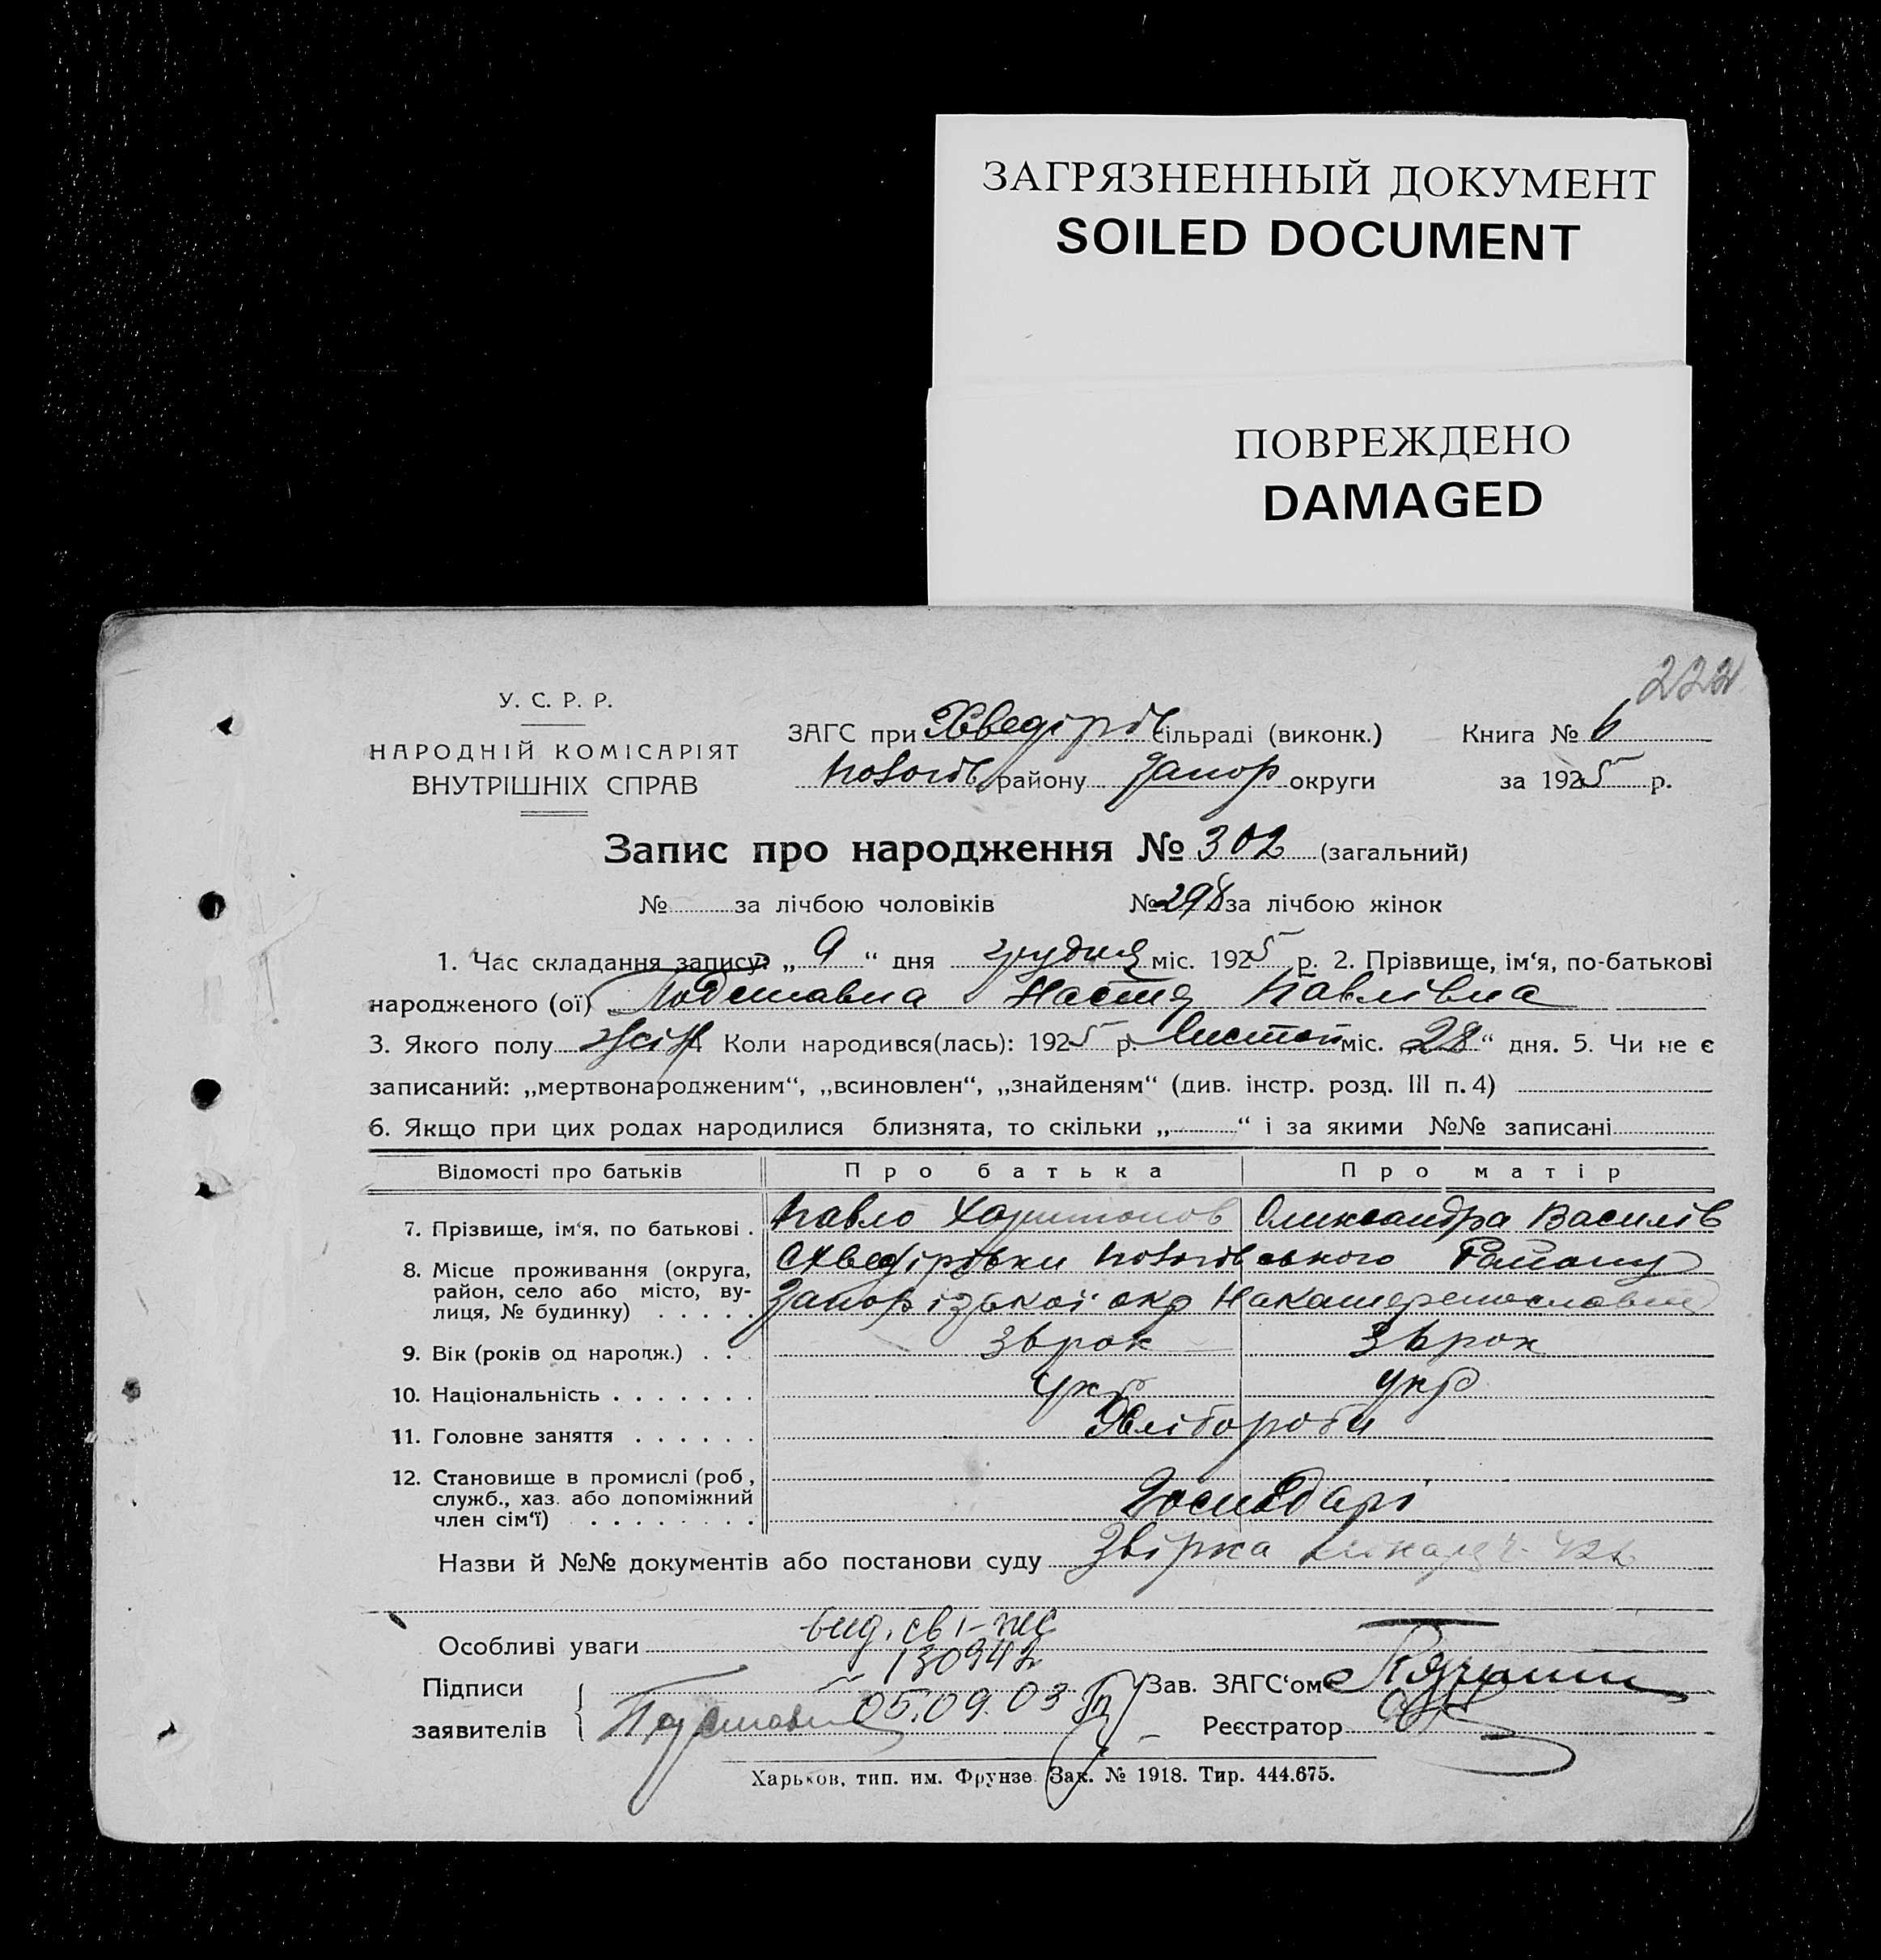 ЗАГРЯЗНЕННЫЙ ДОКУМЕНТ
SOILED DOCUMENT
ПОВРЕЖДЕНО
DAMAGED
222
У. С. Р. Р.
НАРОДНІЙ КОМІСАРІЯТ
ВНУТРІШНІХ СПРАВ
ЗАГС при Хведірів сільраді (виконк.)
району Запор округи
Книга № 6
за 1925 р.
Запис про народження № 302 (загальний)
№ за лічбою чоловіків № 298 за лічбою жінок
1. Час складання запису: „ 9 “ дня грудня міс. 1925 р. 2. Прізвище, ім‘я, по-батькові
народженого (ої) Подставна Настя Павлівна
3. Якого полу жін 4 Коли народився(лась): 1925 р. Листоп міс. „28“ дня. 5. Чи не є
записаний: „мертвонародженим“, „всиновлен“, „знайденям“ (див. інстр. розд. III п. 4)
6. Якщо при цих родах народилися близнята, то скільки „ “ і за якими №№ записані
Відомості про батьків Про батька Про матір
7. Прізвище, ім‘я, по батькові . Павло Харитонов Олександра Василів
8. Місце проживання (округа, район, село або місто, вулиця, № будинку) . . . . . Хведірівки району
Запорізької окр
9. Вік (років од народж.) . . . 36 рок 36 рок
10. Національність . . . . . . . Укр Укр
11. Головне заняття . . . . . . Хлібороби
12. Становище в промислі (роб., служб., хаз. або допоміжний член сім‘ї) . . . . . . . . Господарі
Назви й №№ документів або постанови суду Звірка
Особливі уваги вид. св 1-
130942
Підписи
заявителів
05.09.03
Зав. ЗАГС‘ом
Реєстратор
Харьков, тип. им. Фрунзе. Зак. № 1918. Тир. 444.675.